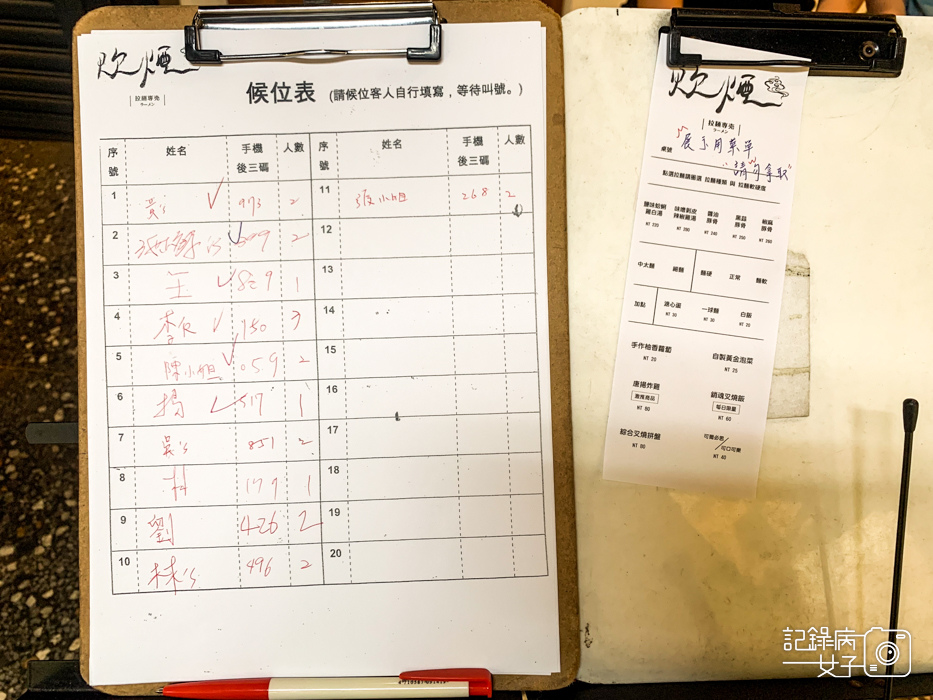 炊煙
拉麵專売
ラーメン
候位表 (請候位客人自行填寫，等待叫號。)
序號 姓名 手機後三碼 人數 序號 姓名 手機後三碼 人數
1 黃's 973 2 11 張小姐 268 2
2 2 12
3 王 829 1 13
4 李R 750 3 14
5 陳小姐 059 2 15
6 楊 517 1 16
7 吳's 851 2 17
8 林 179 1 18
9 劉 426 2 19
10 林's 496 2 20
炊煙
拉麵專売
ラーメン
桌號
"展示用菜單
請勿拿取"
點選拉麵請圈選 拉麵種類 與 拉麵軟硬度
雞白湯 辣椒雞湯 醬油豚骨 黑蒜豚骨 椒麻豚骨
NT 220 NT 290 NT 240 NT 250 NT 260
中太麵 細麵 麵硬 正常 麵軟
加點 溏心蛋 一球麵 白飯
NT 30 NT 30 NT 20
手作柚香蘿蔔 自製黃金泡菜
NT 20 NT 25
唐揚炸雞 銷魂叉燒飯
激推商品 每日限量
NT 80 NT 60
綜合叉燒拼盤 可爾必思/可口可樂
NT 80 NT 40
記錄病女子